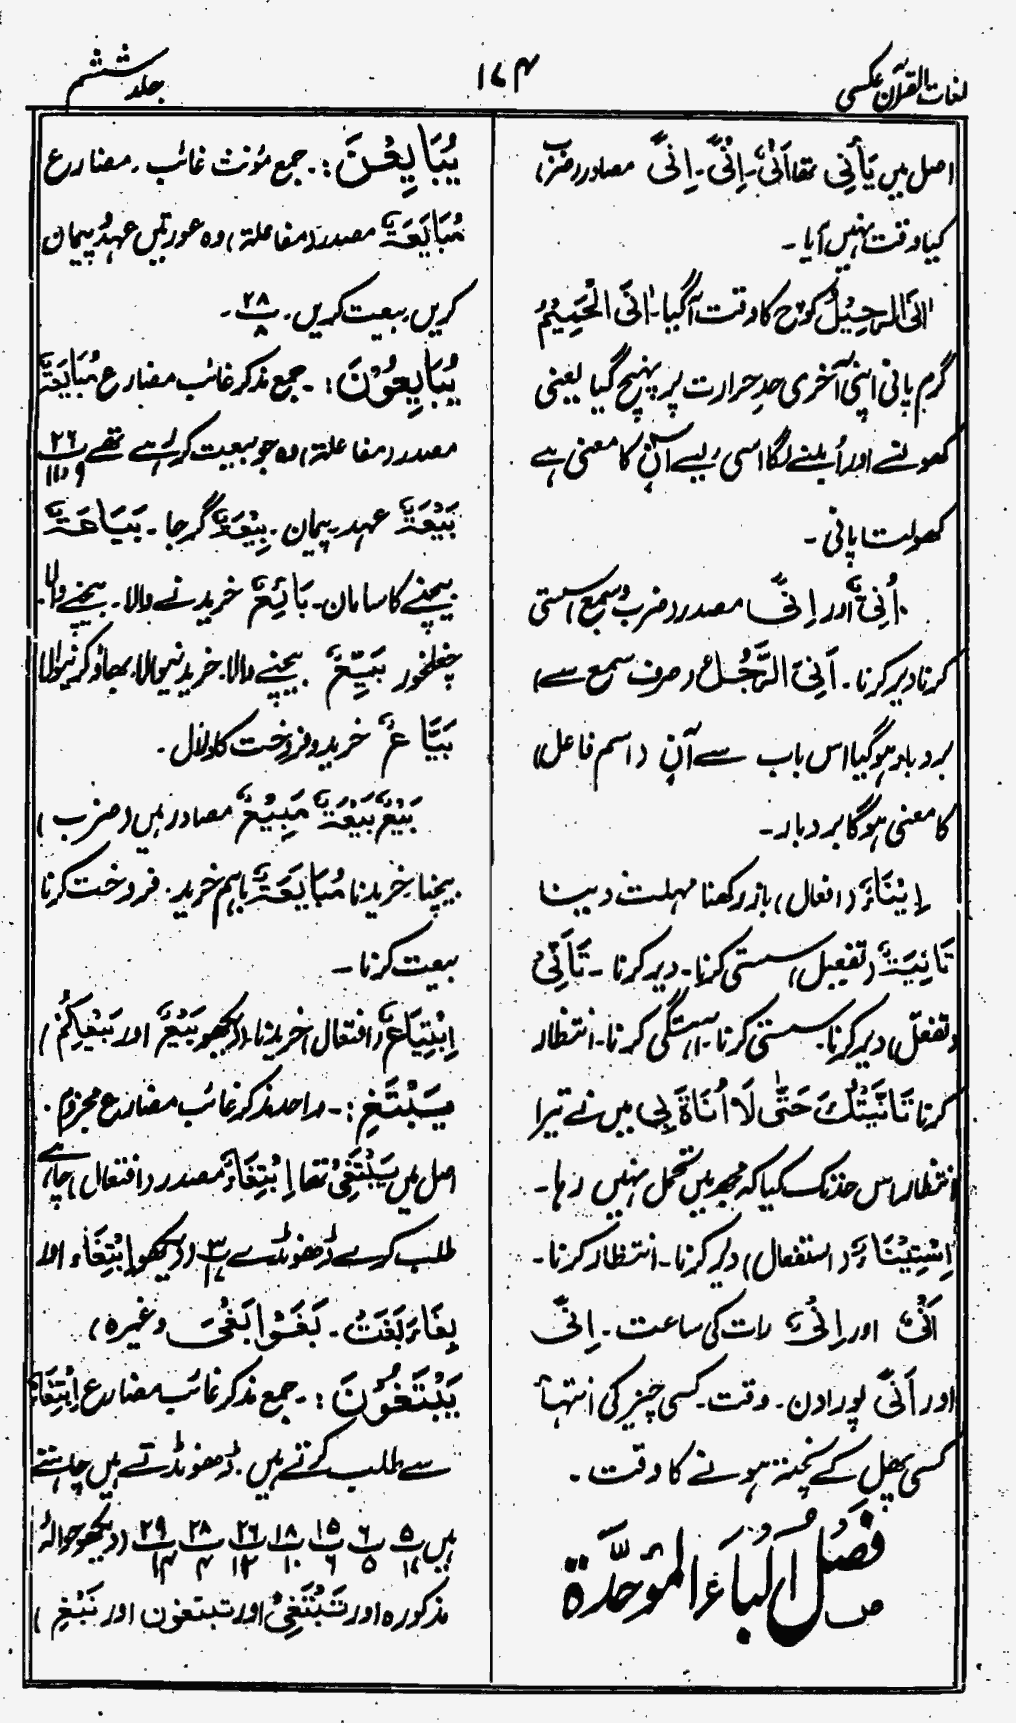 لغات القرآن عکسی
۱۷۴
جلد ششم
اصل میں یَأْنِی تھا اَنْیٌ۔ اِنْیٌ۔ اِنًی مصادر (ضرب)
کیا وقت نہیں آیا۔
اَنَی الرَّحِیْلُ کوچ کا وقت آگیا۔ اَنَی الْحَمِیْمُ
گرم پانی اپنی آخری حدِ حرارت پر پہنچ گیا یعنی
کھولنے اور اُبلنے لگا اسی لیے آنٍ کا معنی ہے
کھولتا پانی۔
اُنِیٌّ اور اِنًی مصدر (ضرب و سمع) سستی
کرنا دیر کرنا۔ اَنِیَ الرَّجُلُ (صرف سمع سے)
بردبار ہو گیا اس باب سے آنٍ (اسم فاعل)
کا معنی ہوگا بردبار۔
اِیْنَاءٌ (افعال) باز رکھنا مہلت دینا
تَانِیَۃٌ (تفعیل) سستی کرنا۔ دیر کرنا۔ تَاَنِّیْ
(تفعّل) دیر کرنا۔ سستی کرنا۔ آہستگی کرنا۔ انتظار
کرنا تَاَنَّیْتُکَ حَتّٰی لَا اُنَاۃَ بِی میں نے تیرا
انتظار اس حد تک کیا کہ مجھ میں تحمل نہیں رہا۔
اِسْتِیْنَاءٌ (استفعال) دیر کرنا۔ انتظار کرنا۔
اَنْیٌ اور اِنْیٌ رات کی ساعت۔ اِنًی
اور اَنًی پورا دن۔ وقت۔ کسی چیز کی انتہا
کسی پھل کے پختہ ہونے کا وقت۔
فصل الباء الموحدۃ
یُبَایِعْنَ :۔ جمع مؤنث غائب۔ مضارع
مُبَایَعَۃٌ مصدر (مفاعلۃ) وہ عورتیں عہد و پیمان
کریں۔ بیعت کریں۔ ۲۸/۸۔
یُبَایِعُوْنَ :۔ جمع مذکر غائب مضارع مُبَایَعَۃٌ
مصدر (مفاعلۃ) وہ جو بیعت کر رہے تھے ۲۶/۹ و ۱۰
بَیْعَۃٌ عہد۔ پیمان۔ بِیْعَۃٌ گرجا۔ بَیَاعَۃٌ
بیچنے کا سامان۔ بَائِعٌ خریدنے والا۔ بیچنے والا۔
چغلخور بَیِّعٌ بیچنے والا۔ خریدنیوالا۔ بھاؤ کرنیوالا
بَیَّاعٌ خرید و فروخت کا دلال۔
بَیْعٌ بَیْعَۃٌ مَبِیْعٌ مصادر ہیں (ضرب)
بیچنا۔ خریدنا مُبَایَعَۃٌ باہم خرید۔ فروخت کرنا
بیعت کرنا۔
اِبْتِیَاعٌ (افتعال) خریدنا (دیکھو بَیْعٌ اور بَیْعِکُمْ)
یَبْتَغِ :۔ واحد مذکر غائب مضارع مجزوم۔
اصل میں یَبْتَغِیْ تھا اِبْتِغَاءٌ مصدر (افتعال) چاہے
طلب کرے ڈھونڈے ۳/۱۷ (دیکھو اِبْتِغَاء اور
بِغَاء بَغَتْ۔ بَغَوْا بَغْیَ وغیرہ)
یَبْتَغُوْنَ :۔ جمع مذکر غائب مضارع اِبْتِغَاءٌ
سے طلب کرتے ہیں۔ ڈھونڈتے ہیں چاہتے
ہیں ۵/۱۷ ۶/۵ ۱۵/۶ ۱۸/۱۰ ۲۶/۱۲ ۲۸/۴ ۲۹/۱۴ (دیکھو حوالہ
مذکورہ اور تَبْتَغِیْ اور تبتغون اور نَبْغِ)